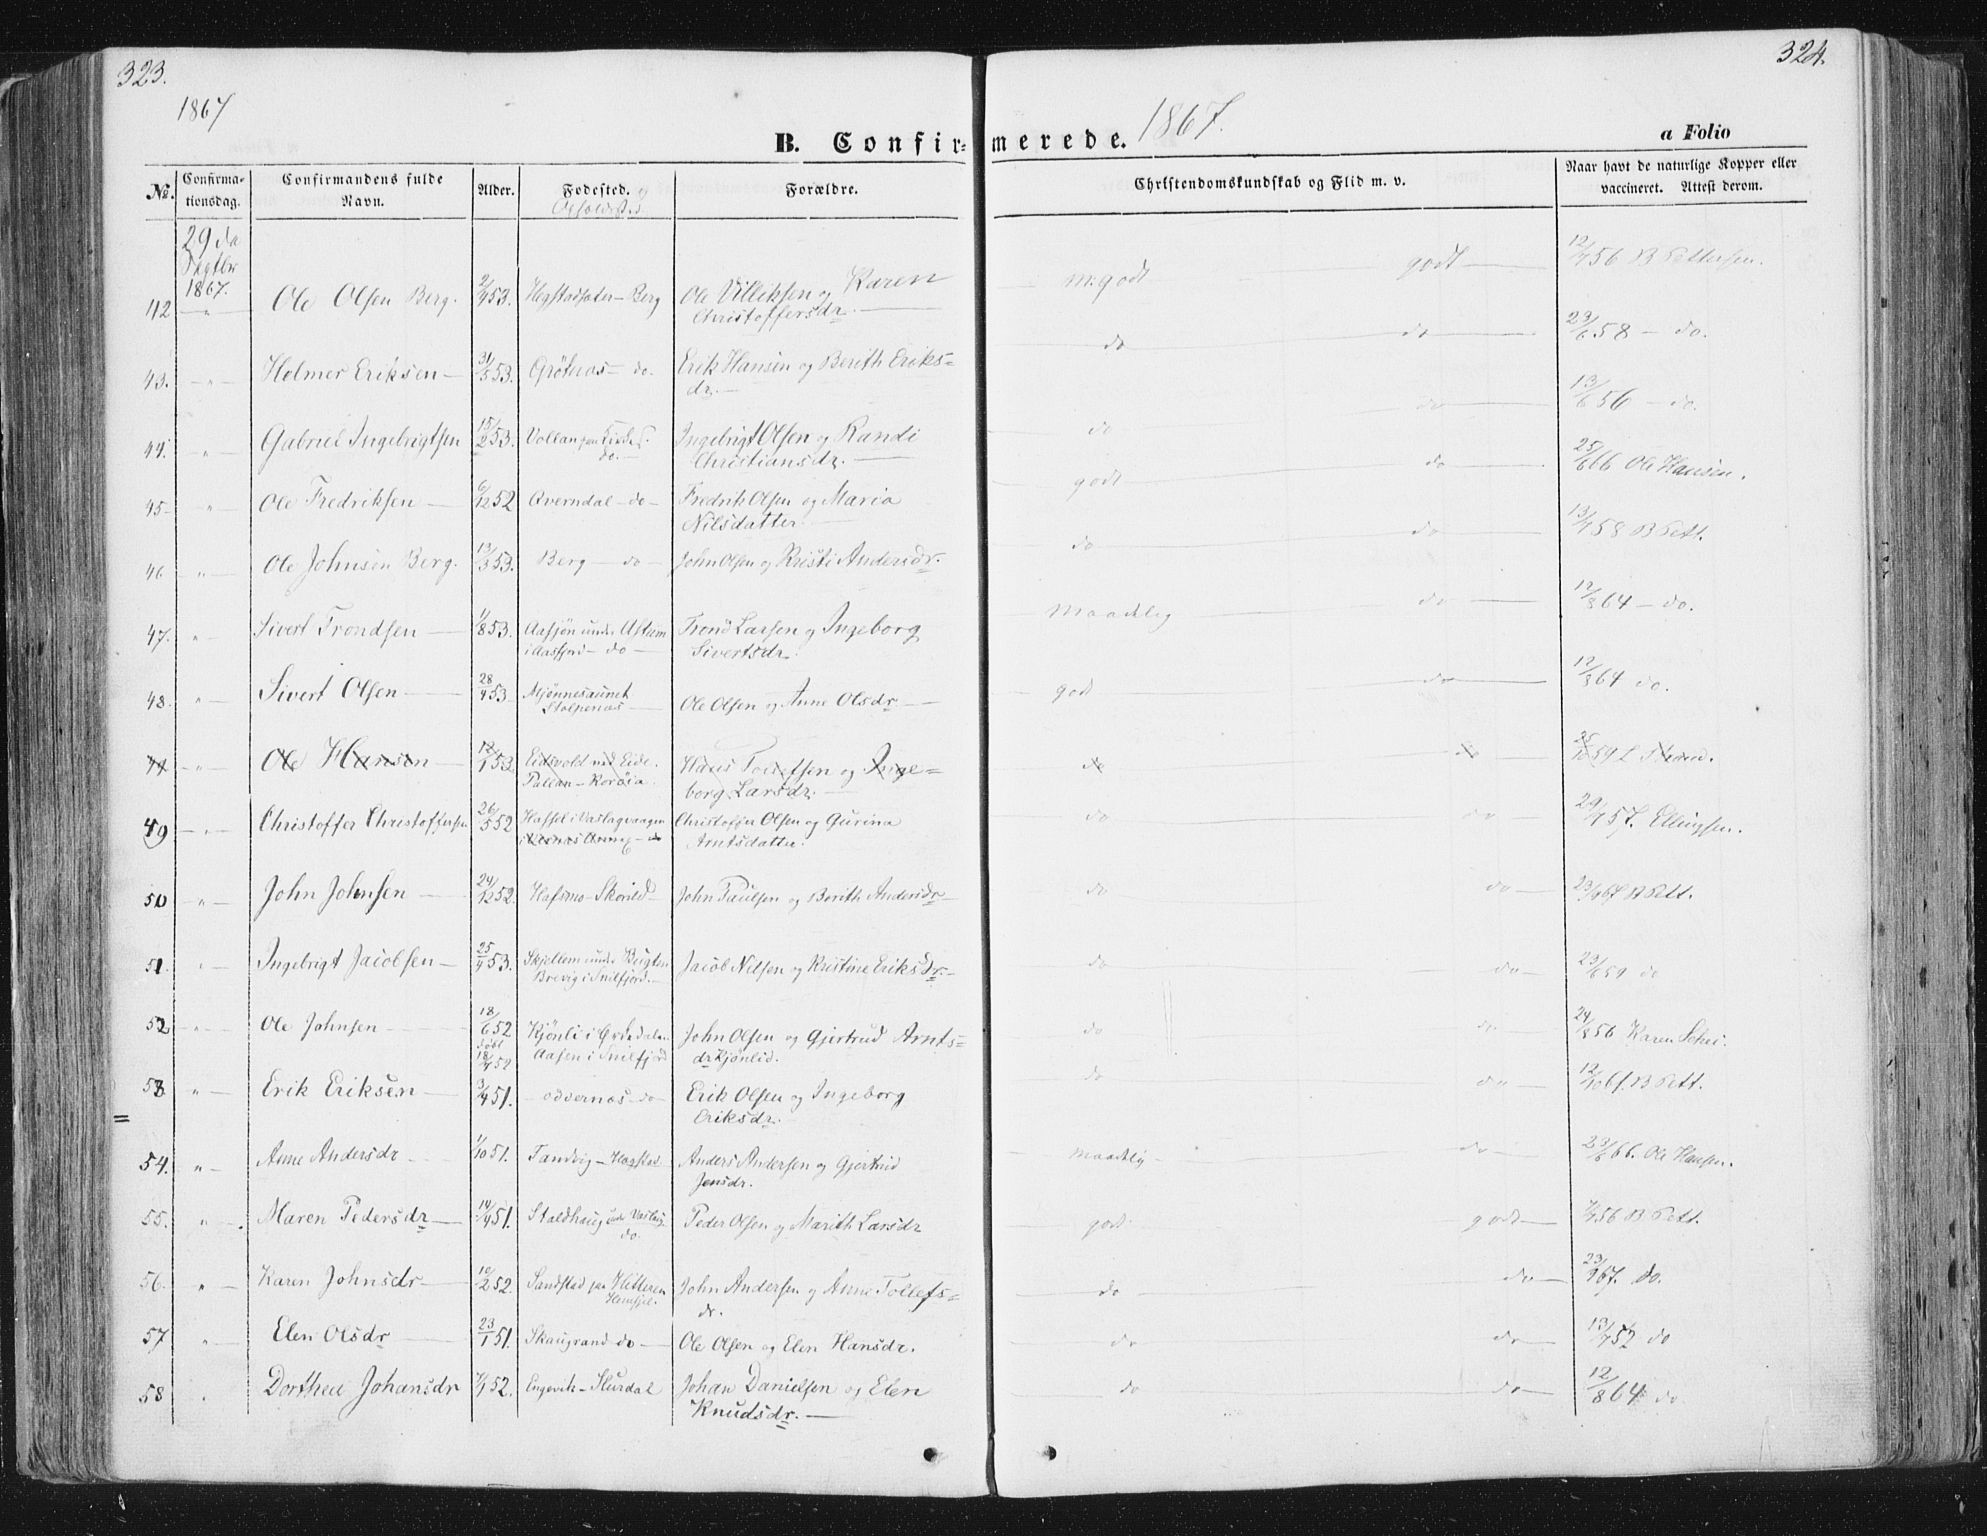 323.
324.
1867
B. Confir-merede. 1867.
a Folio
No.
Confirma-tionsdag.
Confirmandens fulde Navn.
Alder.
Fødested. og Opholdssted
Forældre.
Christendomskundskab og Flid m. v.
Naar havt de naturlige Kopper eller vaccineret. Attest derom.
29da Septbr 1867.
42 " Ole Olsen Berg. 2/453. Hegstadsæter - Berg Ole Villiksen og Karen Christoffersdr. m. godt godt 12/756 B Pettersen.
43. " Holmer Eriksen 31/353. Grötnes - do. Erik Hansen og Berith Eriks=dr. do do 23/658 - do.
44. " Gabriel Ingebrigtsen 15/253. Vollan do. Ingebrigt Olsen og Randi Christiansdr. do do 13/656 - do.
45 " Ole Fredriksen 6/1252 Qverndal - do Fredrik Olsen og Maria Nilsdatter godt do 25/666 Ole Hansen.
46 " Ole Johnsen Berg. 13/353. Berg - do John Olsen og Kristi Andersdr. do do 13/758 B Pett.
47. " Sivert Trondsen 1/853. Aasjøn under i Aasfjord - do Trond Larsen og Ingeborg Sivertsdr. maadelig do 12/864 - do.
48. " Sivert Olsen 28/453 Mjönnesaunet Stolpenæs Ole Olsen og Anne Olsdr godt do 12/864 do.
" Ole Hansen 12/153 Eidsvold ved Eide. Hans Tollefsen og Inge=borg Larsdr. do do
49 " Christoffer Christoffersen 26/552 Hassel i Vaslagvaagen Christoffer Olsen og Gurina Arntsdatter. do do 29/757. Ellingsen.
50 " John Johnsen 24/1252. Hafsmo - Skorild John Paulsen og Berith Andersdr do do 23/967 B Pett.
51. " Ingebrigt Jacobsen 25/453. Brevig i Snilfjord. Jacob Nilsen og Kristine Eriksdr. do do 23/659 do
52 " Ole Johnsen 18/652 døbt 18/752 Kjönli i Aasen i Snilfjord John Olsen og Gjertrud Arnts=dr Kjönlid. do do 24/856 Karen Schei.
53 " Erik Eriksen 3/451. odvernæs - do Erik Olsen og Ingeborg Eriksdr. do do 12/1067. B Pett.
54. " Anne Andersdr 1/1051. Tandvig - Hogstad Anders Andersen og Gjertrud Jensdr. maadelig do 23/666. Ole Hansen.
55. " Maren Pedersdr 14/451. Staldhaug under Vaslag do. Peder Olsen og Marith Larsdr godt godt 7/756 B Pett.
56. " Karen Johnsdr 10/252. Sandstad paa Hitteren John Andersen og Anne Tollefs=dr. do do 23/967. do.
57 " Elen Olsdr 23/151. Skaugrand do Ole Olsen og Elen Hansdr. do do 13/752 do
58 " Dorthea Johansdr 7/152. Engevik - Slurdal Johan Danielsen og Elen Knudsdr. do do 12/864 do.